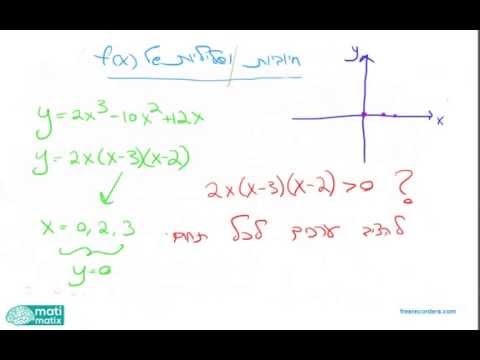 חיוביות ושליליות של f(x)
y
x
y = 2x³ - 10x² + 12x
y = 2x(x-3)(x-2)
2x(x-3)(x-2) > 0 ?
x = 0, 2, 3
להציב ערכים לכל תחום.
y = 0
mati
matix
freerecorders.com